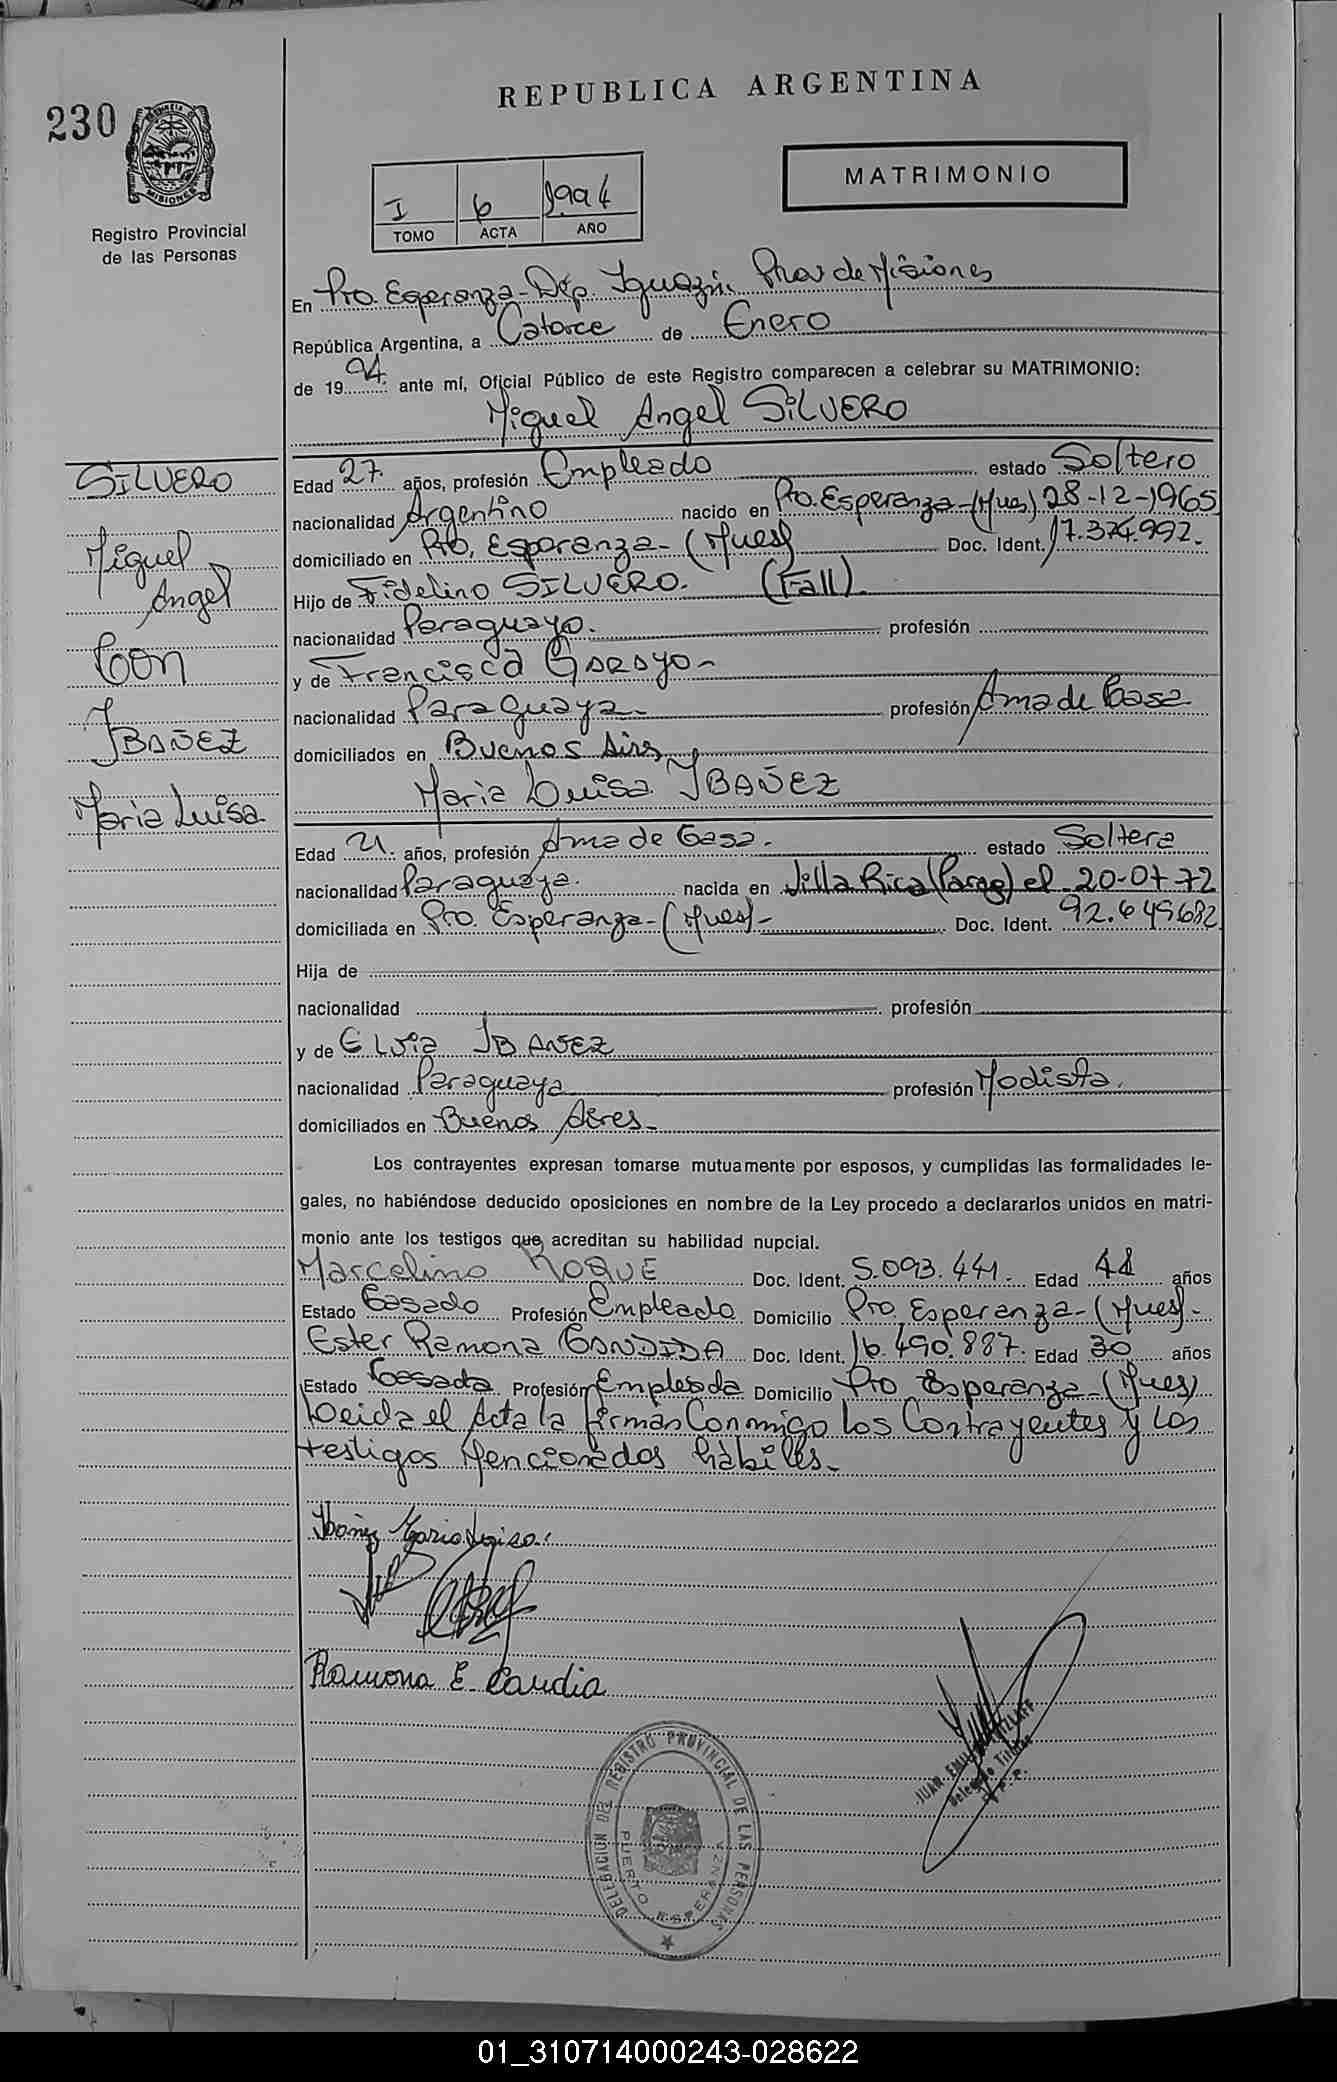 REPUBLICA ARGENTINA
230
MISIONES
Registro Provincial
de las Personas
I 6 1994
TOMO ACTA AÑO
MATRIMONIO
En Pto. Esperanza - Dep. Iguazú. Prov de Misiones
República Argentina, a Catorce de Enero
de 1994 ante mí, Oficial Público de este Registro comparecen a celebrar su MATRIMONIO:
Miguel Angel SILVERO
SILVERO
Miguel
Angel
Con
IBAÑEZ
Maria Luisa
Edad 27 años, profesión Empleado estado Soltero
nacionalidad Argentino nacido en Pto. Esperanza-(Mnes) 28-12-1965
domiciliado en Pto. Esperanza- (Mnes) Doc. Ident. 17.374.992.-
Hijo de Fidelino SILVERO. (Fall).
nacionalidad Paraguayo. profesión
y de Francisca GARAYO-
nacionalidad Paraguaya- profesión Ama de Casa
domiciliados en Buenos Aires
Maria Luisa IBAÑEZ
Edad 21. años, profesión Ama de Casa. estado Soltera
nacionalidad Paraguaya. nacida en Villa Rica (Parag) el 20-07-72
domiciliada en Pto. Esperanza-(Mnes)- Doc. Ident. 92.649682
Hija de
nacionalidad profesión
y de Elvia IBAÑEZ
nacionalidad Paraguaya profesión Modista.
domiciliados en Buenos Aires-
Los contrayentes expresan tomarse mutuamente por esposos, y cumplidas las formalidades le-
gales, no habiéndose deducido oposiciones en nombre de la Ley procedo a declararlos unidos en matri-
monio ante los testigos que acreditan su habilidad nupcial.
Marcelino ROQUE Doc. Ident. 5.093.441.- Edad 44 años
Estado Casado Profesión Empleado Domicilio Pto. Esperanza-(Mnes)-
Ester Ramona CANDIDA Doc. Ident. 16.490.887. Edad 30 años
Estado Casada Profesión Empleada Domicilio Pto Esperanza-(Mnes)
Leida el Acta la firman Conmigo los Contrayentes y los
testigos Mencionados hábiles.-
Ibañez Maria Luisa.
Ramona E. Candia
JUAN
Delegado Titular
DELEGACION DEL REGISTRO PROVINCIAL DE LAS PERSONAS
PUERTO ESPERANZA
01_310714000243-028622